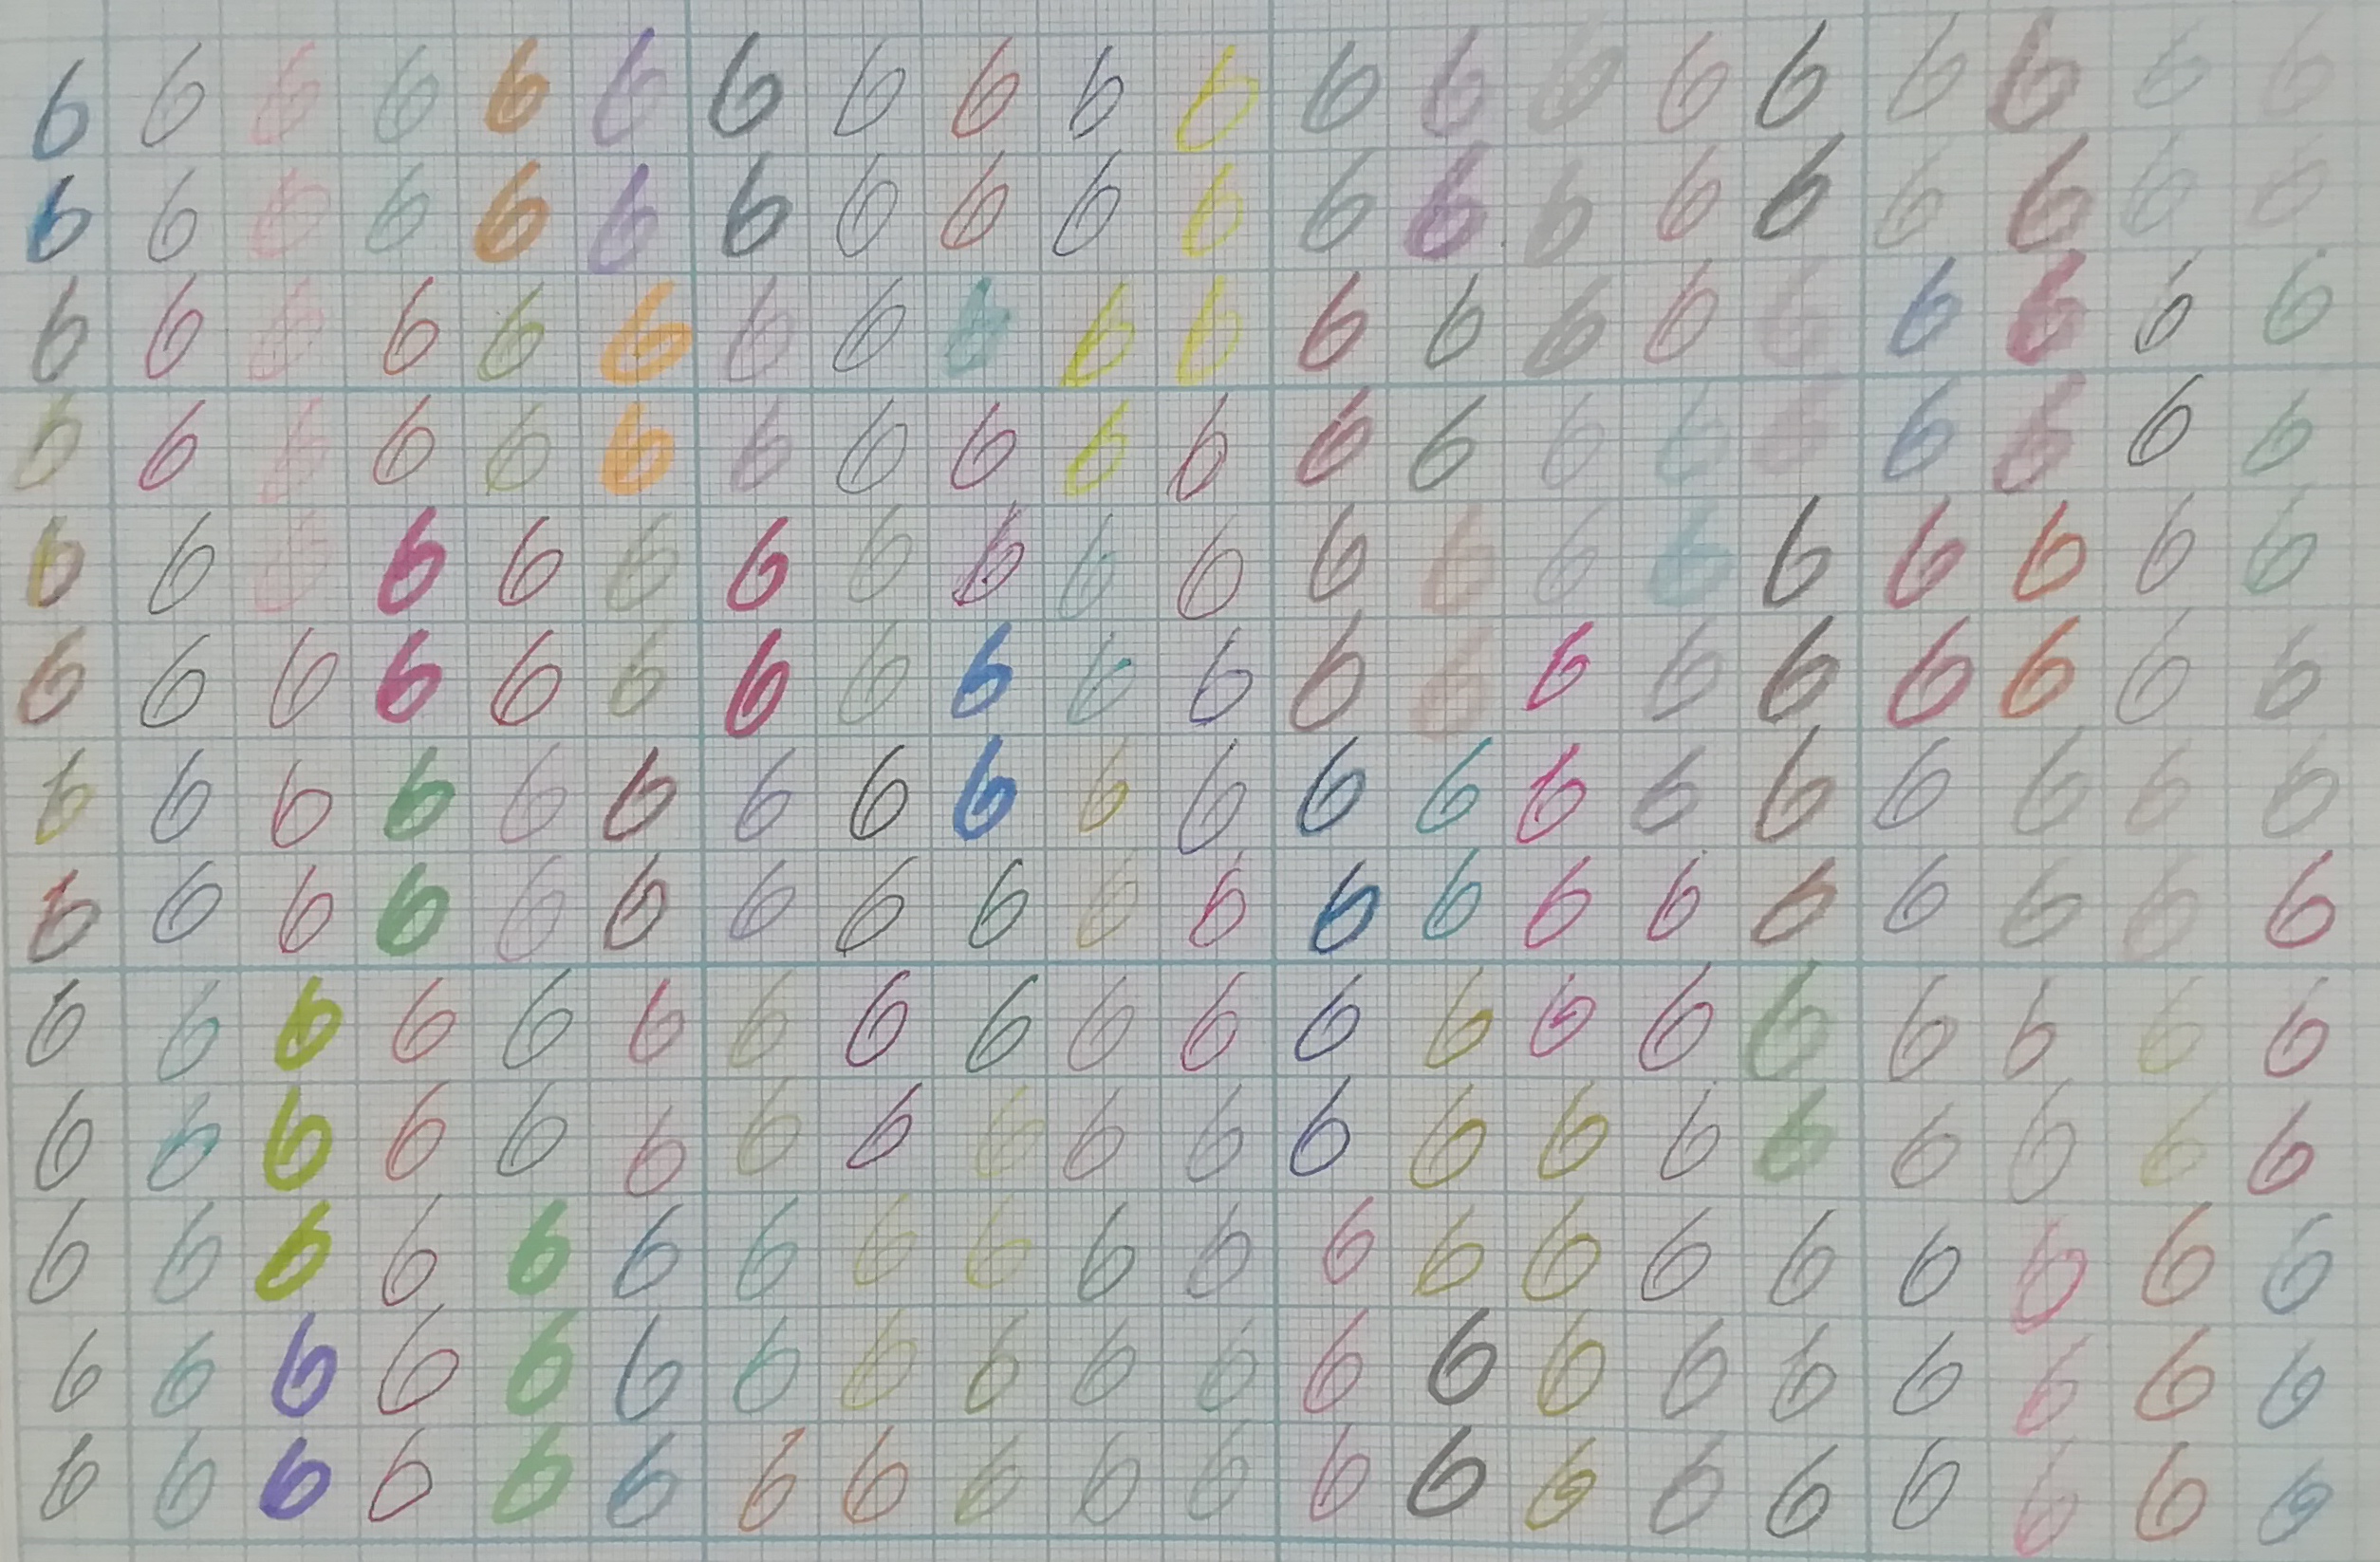 6 6 6 6 6 6 6 6 6 6 6 6 6 6 6 6 6 6 6 6
6 6 6 6 6 6 6 6 6 6 6 6 6 6 6 6 6 6 6 6
6 6 6 6 6 6 6 6 6 6 6 6 6 6 6 6 6 6 6 6
6 6 6 6 6 6 6 6 6 6 6 6 6 6 6 6 6 6 6 6
6 6 6 6 6 6 6 6 6 6 6 6 6 6 6 6 6 6 6 6
6 6 6 6 6 6 6 6 6 6 6 6 6 6 6 6 6 6 6 6
6 6 6 6 6 6 6 6 6 6 6 6 6 6 6 6 6 6 6 6
6 6 6 6 6 6 6 6 6 6 6 6 6 6 6 6 6 6 6 6
6 6 6 6 6 6 6 6 6 6 6 6 6 6 6 6 6 6 6 6
6 6 6 6 6 6 6 6 6 6 6 6 6 6 6 6 6 6 6 6
6 6 6 6 6 6 6 6 6 6 6 6 6 6 6 6 6 6 6 6
6 6 6 6 6 6 6 6 6 6 6 6 6 6 6 6 6 6 6 6
6 6 6 6 6 6 6 6 6 6 6 6 6 6 6 6 6 6 6 6